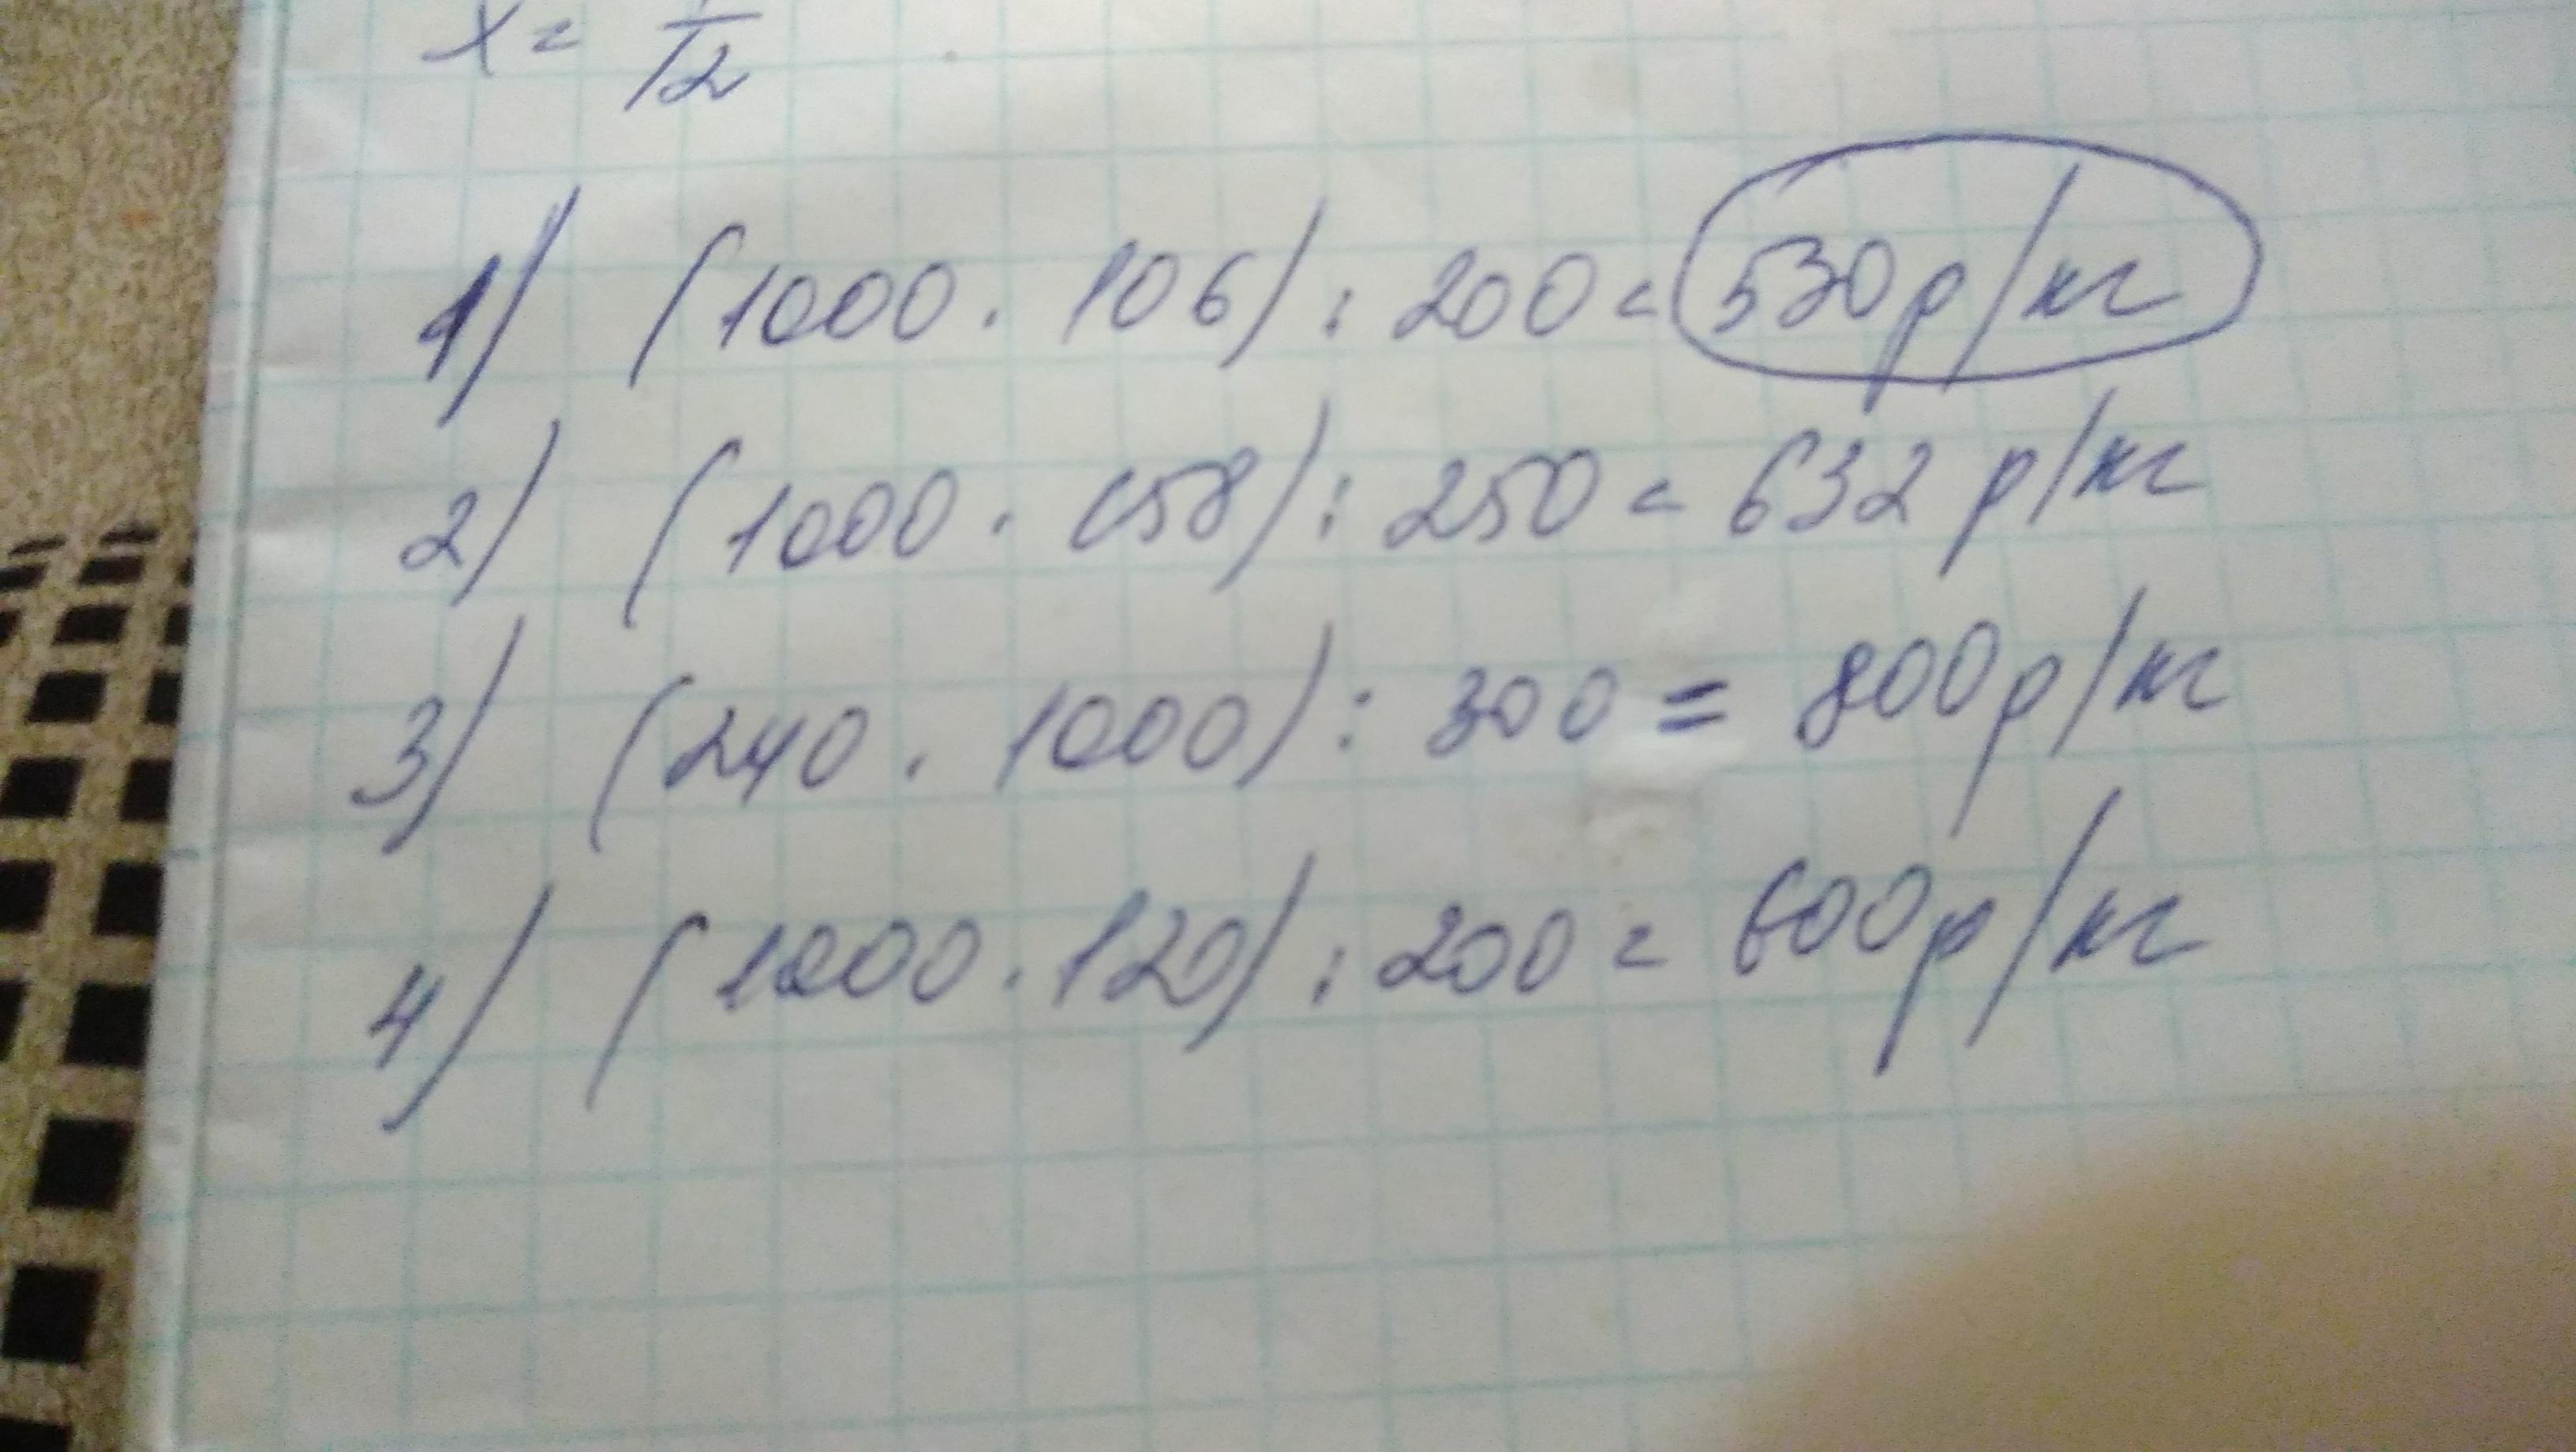 x = 1/12
1) (1000 · 106) : 200 = 530 р/кг
2) (1000 · 158) : 250 = 632 р/кг
3) (240 · 1000) : 300 = 800 р/кг
4) (1000 · 120) : 200 = 600 р/кг